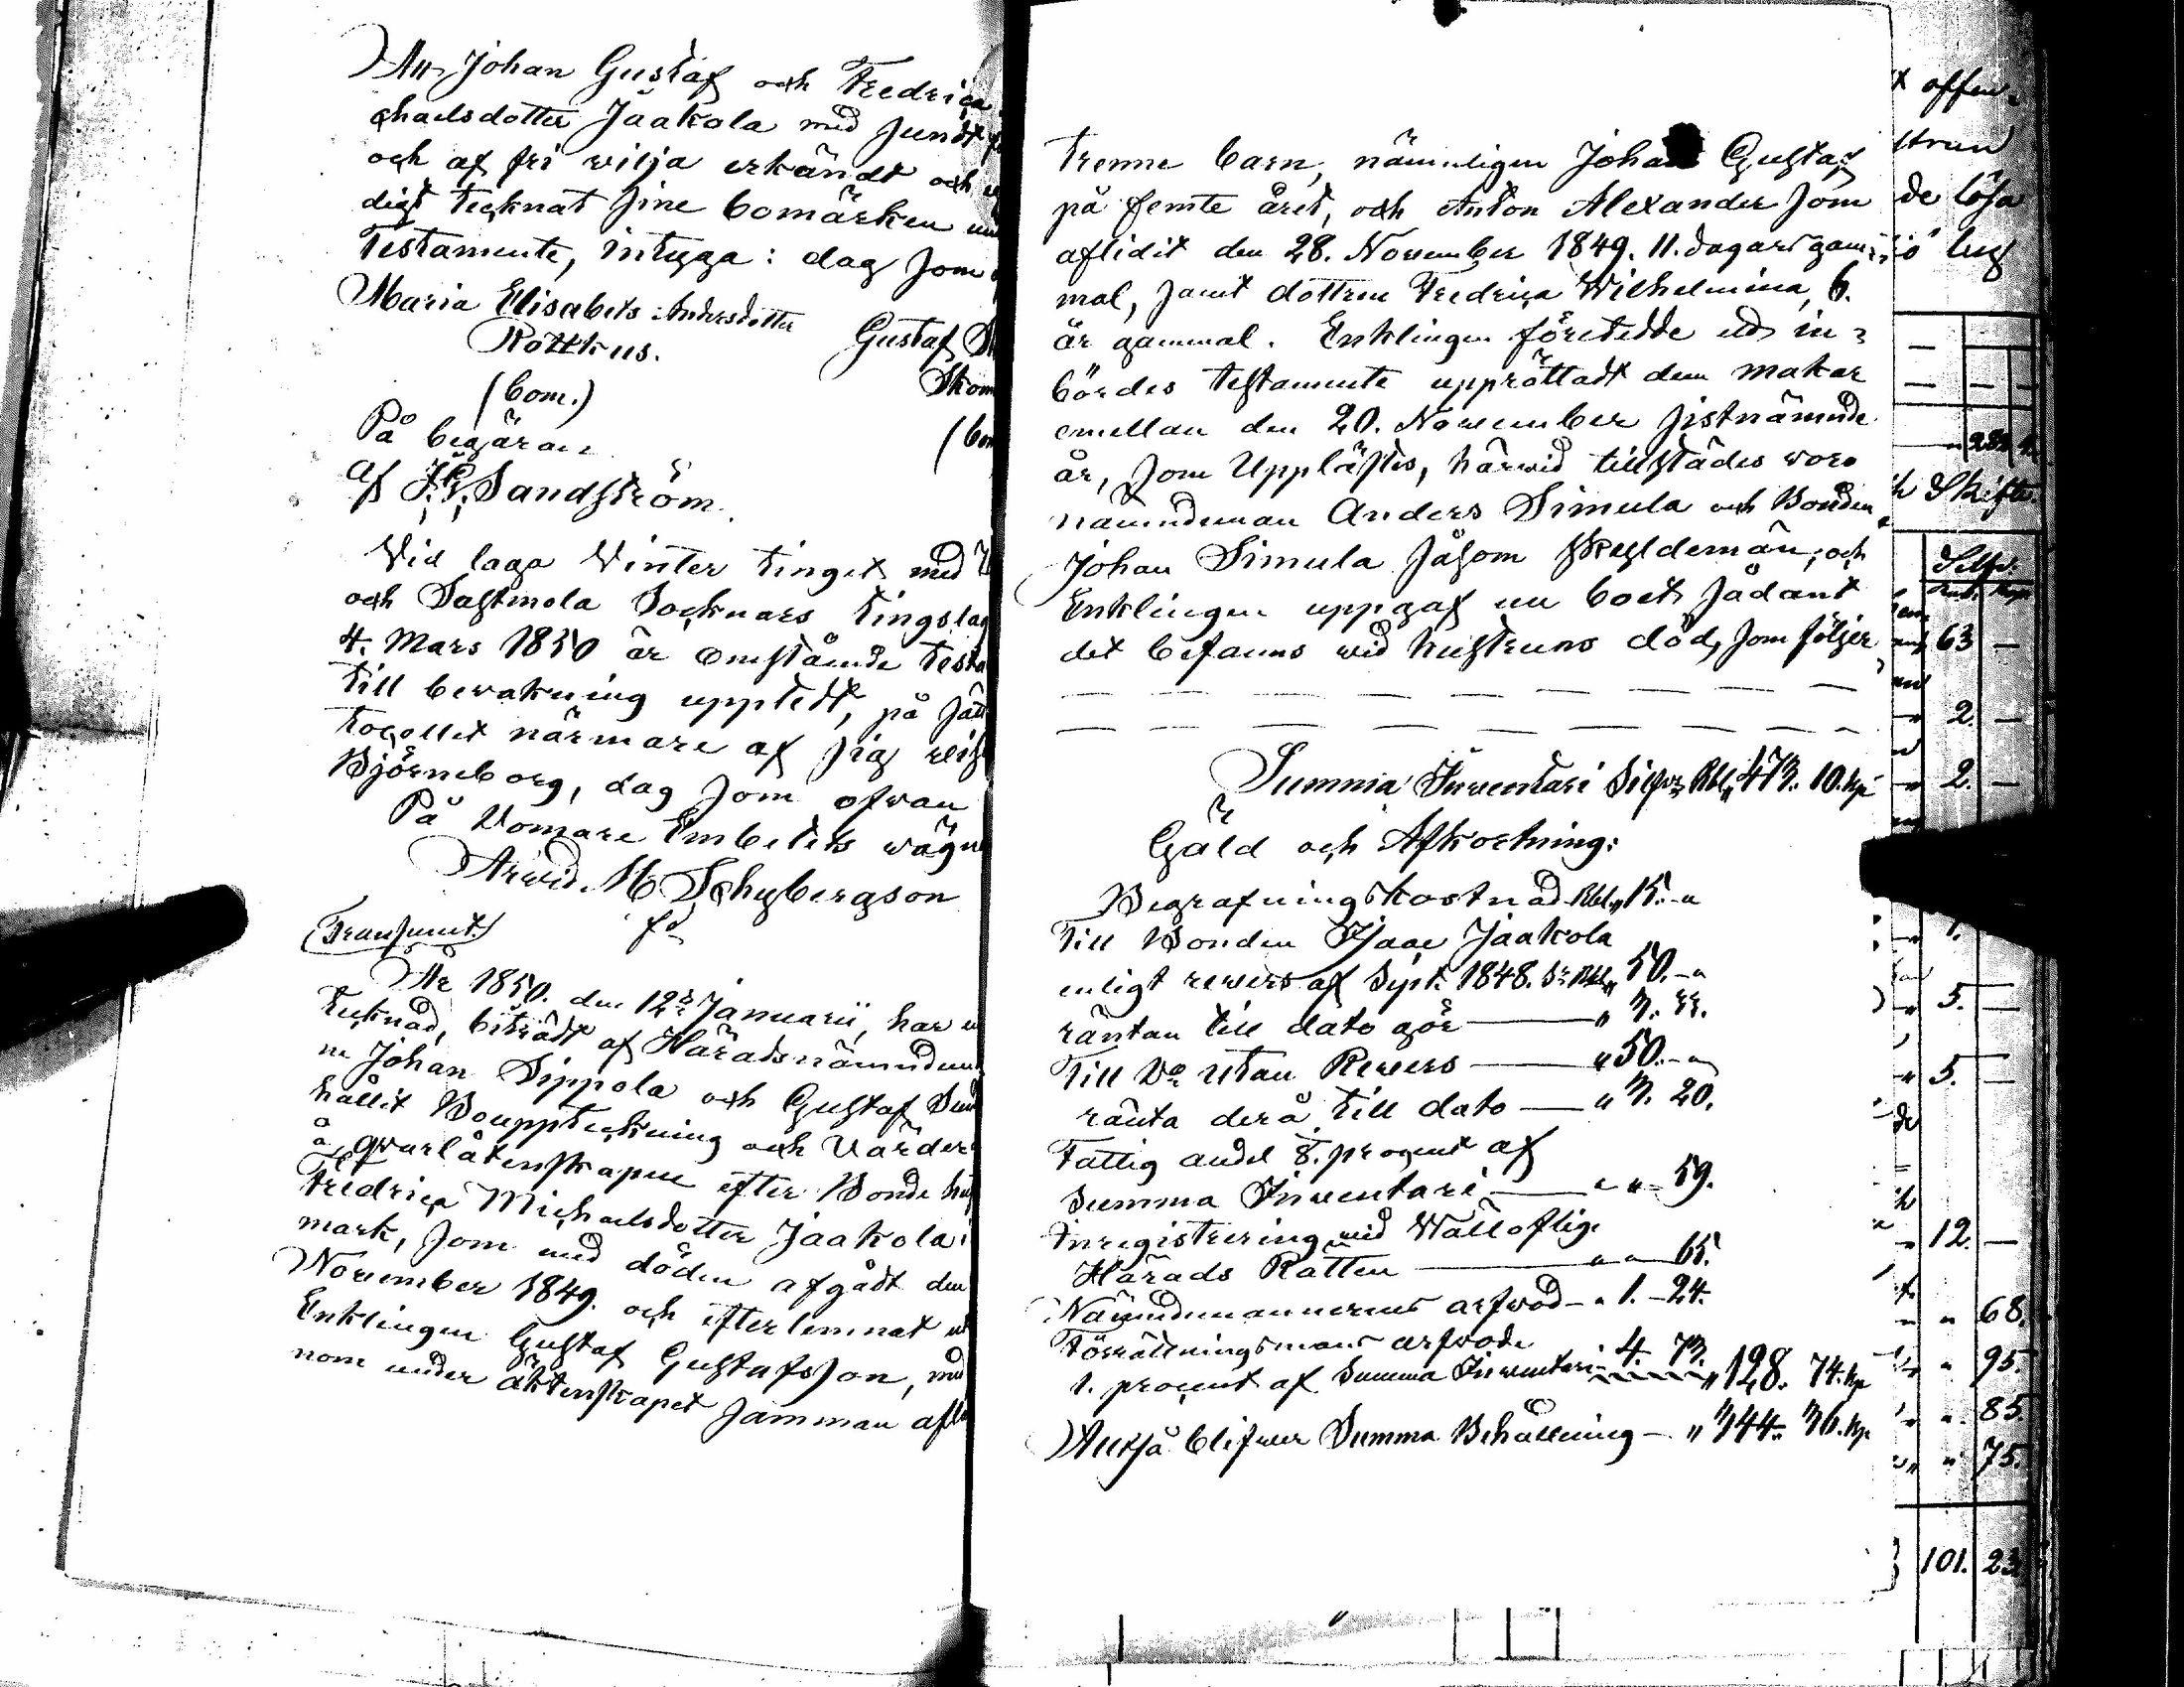 Att Johan Gustaf och Fredrica
chaelsdotter Jaakola med sundt
och af fri wilja erkändt och
digt tecknat sine bomärken
Testamente, intyga: dag som
Maria Elisabets Andersdotter Gustaf
Rottkus.
(bom.)
På begäran
af Sandström.
Vid laga Vinter tinget med
och Sastmola Socknars tingslag
4. Mars 1850 är omstående testa
till bevakning uppte​dt, på sätt
tocollet närmare af sig
Björneborg, dag som ofvan
På Domare Embetets vägnar
Arvid M Schybergson
(Transsumt.)
År 1850. den 12te Januarii, har
tecknad, biträdt af Häradsnämndem
Johan Sippola och Gustaf
hållit Bouppteckning och Värder
å qvarlåtenskapen efter Bonde hu
Fredrica Michaelsdotter Jaakola i
mark, som med döden afgådt den
November 1849. och efterlemnat
Enklingen Gustaf Gustafsson,
nom under äktenskapet samman afl
trenne barn, nämnligen Johan Gustaf
på femte året, och Anton Alexander som
aflidit den 28. November 1849. 11. dagars gam-
mal, samt dottren Fredrica Wilhelmina, 6.
år gammal. Enklingen företedde ett in-
bördes testamente upprättadt dem makar
emellan den 20. November sistnämnde
år, som Upplästes, härvid tillstädes voro
nämndeman Anders Simula och Bonden
Johan Simula såsom skyldemän, och
Enklingen uppgaf nu boet sådant
det befanns vid hustruns död, som följer
Summa Inventarii Silfver Rbl. 473. 10. kp
Gäld och Afkortning:
Begrafningskostnad Rbl. 15.
Till Bonden Isaac Jaakola
enligt revers af Sept. 1848. Sr Rbl. 50.
räntan till dato gör 3. 33.
Till Do utan Revers 50.
ränta derå till dato 3. 20.
Fattig andel 8. procent af
Summa Inventarii 59.
Inregistrering vid Wällofliga
Härads Rätten 65.
Nämndemannernes arfvod 1. 24.
Förrättningsmans arfvode
1. procent af Summa Inventarii 4. 73. 128. 74. kp
Alltså blifver Summa Behållning 344. 36. kp.
offen-
de lösa
Skifte
Silfv.
63
2.
2.
5.
5.
12.
68.
95.
85.
75.
101. 23